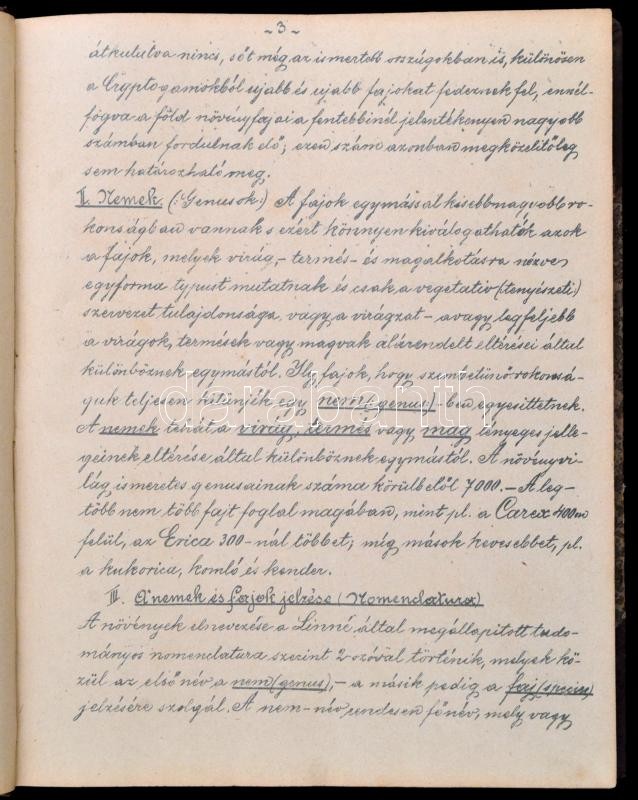 ~3~
átkutatva nincs, sőt még az ismertebb országokban is, különösen
a Cryptogamokból ujabb és ujabb fajokat fedeznek fel, ennél-
fogva a föld növényfajai a fentebbinél jelentékenyen nagyobb
számban fordulnak elő; ezen szám azonban megközelitőleg
sem határozható meg.
II. Nemek. (:Genusok:) A fajok egymással kisebb nagyobb ro-
konságban vannak s ezért könnyen kiválogathatók azok
a fajok, melyek virág,- termés- és magalkotásra nézve
egyforma typust mutatnak és csak a vegetativ (tenyészeti:)
szervezet tulajdonsága, vagy a virágzat - avagy legfeljebb
a virágok, termések vagy magvak alárendelt eltérései által
különböznek egymástól. Ily fajok, hogy szembetünő rokonsá-
guk teljesen kitünjék egy nem(genus)-ben egyesittetnek.
A nemek tehát a virág, termés vagy mag lényeges jelle-
geinek eltérése által különböznek egymástól. A növényvi-
lág ismeretes genusainak száma körülbelől 7000.- A leg-
több nem több fajt foglal magában, mint pl. a Carex 400on
felül, az Erica 300-nál többet; mig mások kevesebbet, pl.
a kukorica, komló és kender.
III. A nemek és fajok jelzése (Nomenclatura)
A növények elnevezése a Linné által megállapitott tudo-
mányos nomenclatura szerint 2 szóval történik, melyek kö-
zül az első név a nem(genus),- a másik pedig a faj(species)
jelzésére szolgál. A nem-név rendesen főnév, mely vagy
darabanth